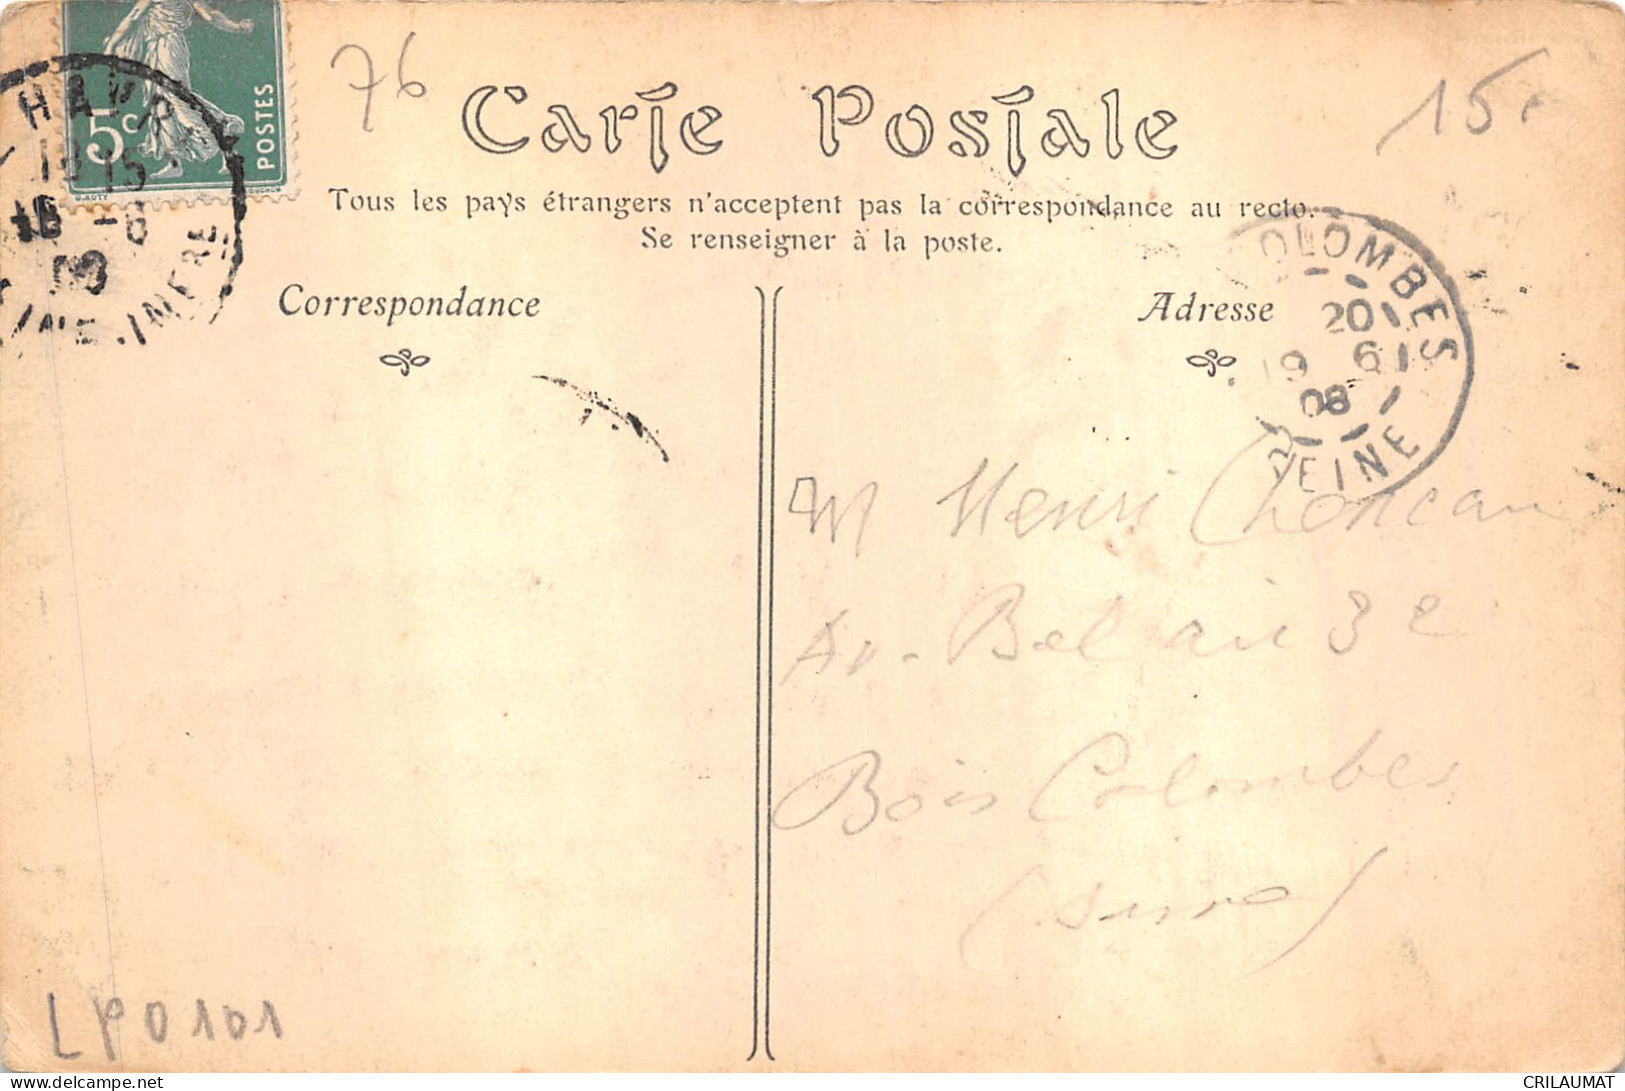 76
15
Carte Postale
Tous les pays étrangers n'acceptent pas la correspondance au recto.
Se renseigner à la poste.
Correspondance
Adresse
5c POSTES
HAVRE
18 15
INFRE
COLOMBES
20
19 6
08
SEINE
M Henri
Av. Bel air 32
Bois Colombes
(Seine)
LPO101
CRILAUMAT